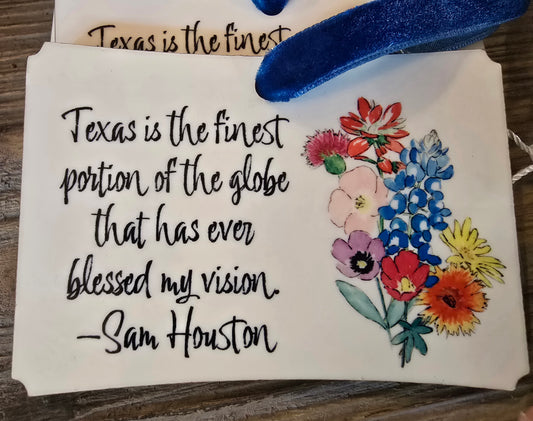 Texas is the finest
Texas is the finest
portion of the globe
that has ever
blessed my vision.
—Sam Houston